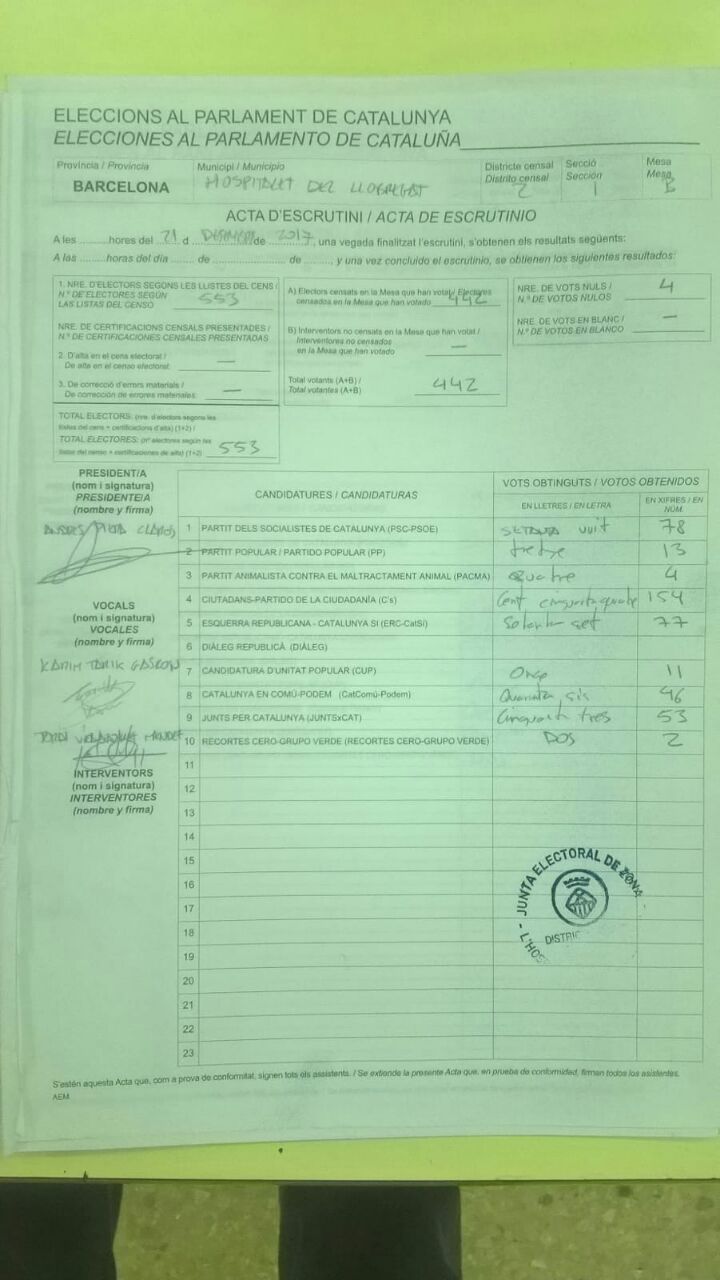 ELECCIONS AL PARLAMENT DE CATALUNYA
ELECCIONES AL PARLAMENTO DE CATALUÑA
Província / Provincia
BARCELONA
Municipi / Municipio
HOSPITALET DEL LLOBREGAT
Districte censal
Distrito censal
2
Secció
Sección
1
Mesa
Mesa
B
ACTA D'ESCRUTINI / ACTA DE ESCRUTINIO
A les ......... hores del 21 d de 2017, una vegada finalitzat l'escrutini, s'obtenen els resultats següents:
A las ......... horas del día ....... de ............ de ........, y una vez concluido el escrutinio, se obtienen los siguientes resultados:
1. NRE. D'ELECTORS SEGONS LES LLISTES DEL CENS /
N.º DE ELECTORES SEGÚN
LAS LISTAS DEL CENSO 553
NRE. DE CERTIFICACIONS CENSALS PRESENTADES /
N.º DE CERTIFICACIONES CENSALES PRESENTADAS
2. D'alta en el cens electoral /
De alta en el censo electoral: —
3. De correcció d'errors materials /
De corrección de errores materiales: —
TOTAL ELECTORS: (nre. d'electors segons les
llistes del cens + certificacions d'alta) (1+2) /
TOTAL ELECTORES: (nº electores según las
listas del censo + certificaciones de alta) (1+2) 553
A) Electors censats en la Mesa que han votat / Electores
censados en la Mesa que han votado 442
B) Interventors no censats en la Mesa que han votat /
Interventores no censados
en la Mesa que han votado —
Total votants (A+B) /
Total votantes (A+B) 442
NRE. DE VOTS NULS /
N.º DE VOTOS NULOS 4
NRE. DE VOTS EN BLANC /
N.º DE VOTOS EN BLANCO —
PRESIDENT/A
(nom i signatura)
PRESIDENTE/A
(nombre y firma)
VOCALS
(nom i signatura)
VOCALES
(nombre y firma)
INTERVENTORS
(nom i signatura)
INTERVENTORES
(nombre y firma)
CANDIDATURES / CANDIDATURAS
VOTS OBTINGUTS / VOTOS OBTENIDOS
EN LLETRES / EN LETRA
EN XIFRES / EN NÚM.
1 PARTIT DELS SOCIALISTES DE CATALUNYA (PSC-PSOE) vuit 78
2 PARTIT POPULAR / PARTIDO POPULAR (PP) tretze 13
3 PARTIT ANIMALISTA CONTRA EL MALTRACTAMENT ANIMAL (PACMA) Quatre 4
4 CIUTADANS-PARTIDO DE LA CIUDADANÍA (C's) Cent cinquanta quatre 154
5 ESQUERRA REPUBLICANA - CATALUNYA SÍ (ERC-CatSí) set 77
6 DIÀLEG REPUBLICÀ (DIÀLEG)
7 CANDIDATURA D'UNITAT POPULAR (CUP) Onze 11
8 CATALUNYA EN COMÚ-PODEM (CatComú-Podem) Quaranta sis 46
9 JUNTS PER CATALUNYA (JUNTSxCAT) Cinquanta tres 53
10 RECORTES CERO-GRUPO VERDE (RECORTES CERO-GRUPO VERDE) DOS 2
11
12
13
14
15
16
17
18
19
20
21
22
23
JUNTA ELECTORAL DE ZONA
L'HOS
DISTRI
S'estén aquesta Acta que, com a prova de conformitat, signen tots els assistents. / Se extiende la presente Acta que, en prueba de conformidad, firman todos los asistentes.
AEM